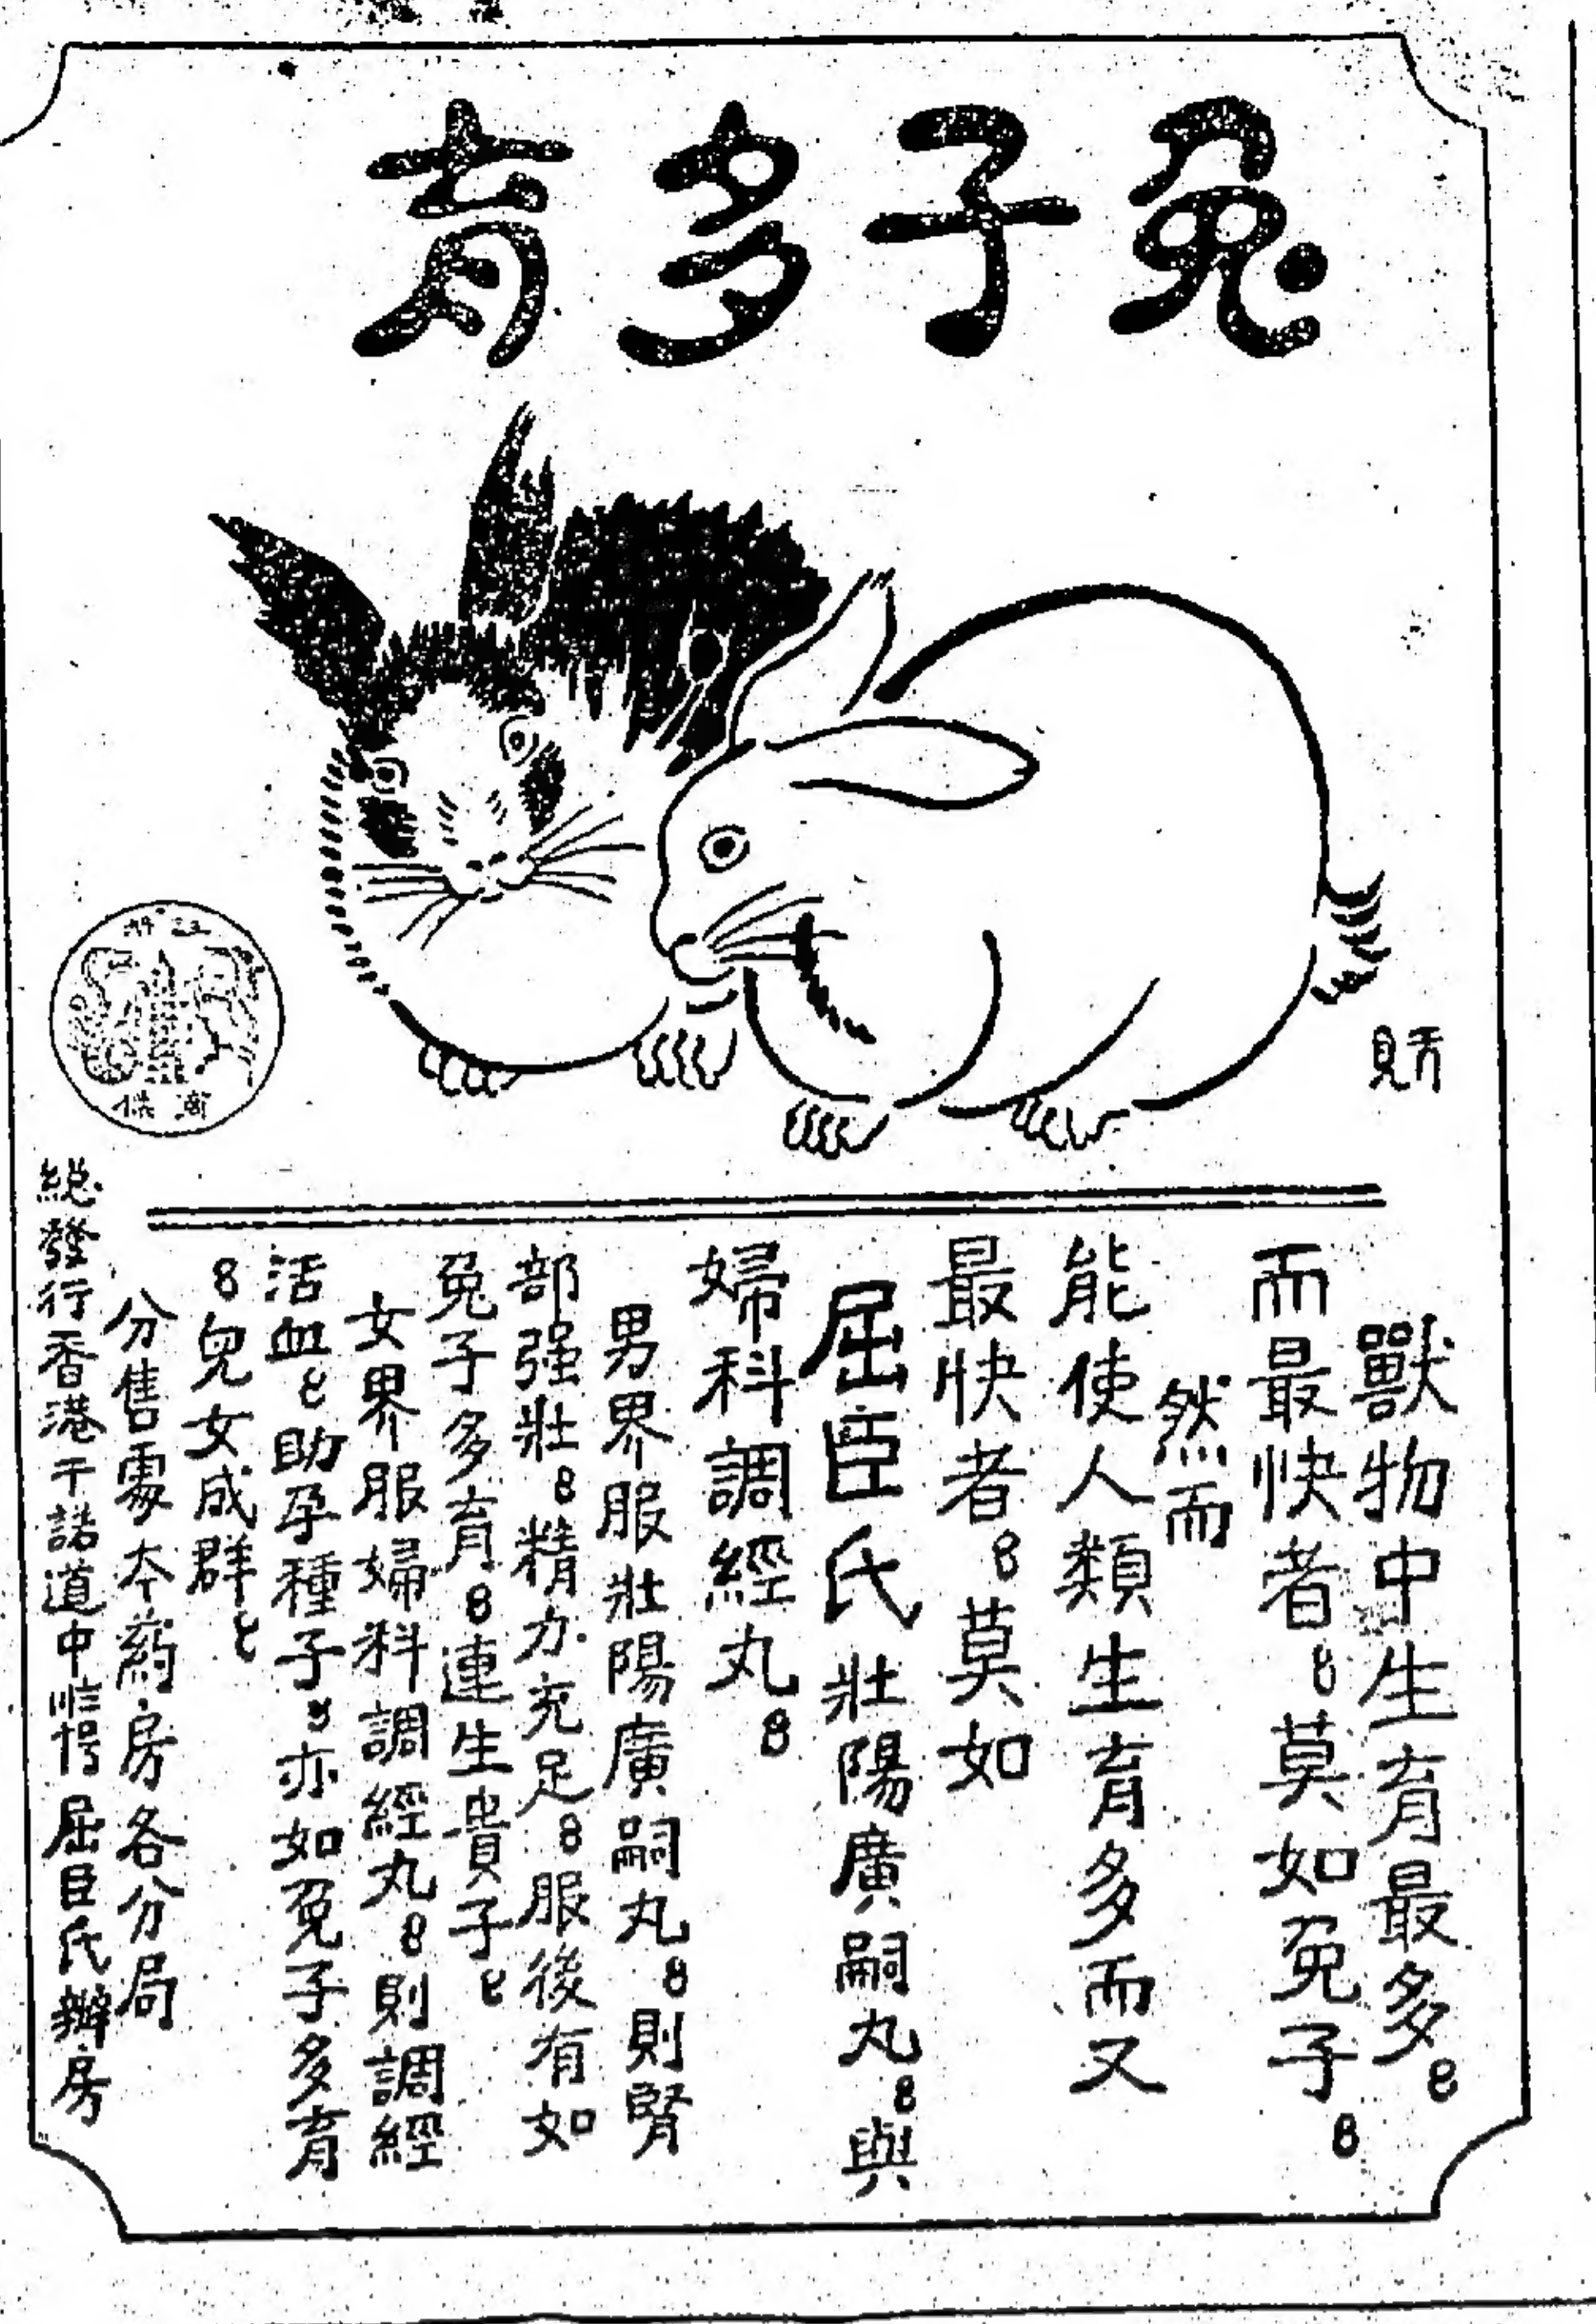 兔子多育
註冊
商標
獸物中生育最多。
而最快者。莫如兔子。
然而
能使人類生育多而又
最快者。莫如
屈臣氏壯陽廣嗣丸。與
婦科調經丸。
男界服壯陽廣嗣丸。則腎
部强壯。精力充足。服後有如
兔子多育。連生貴子。
女界服婦科調經丸。則調經
活血。助孕種子。亦如兔子多育
。兒女成群。
分售處本藥房各分局
總發行香港干諾道中 屈臣氏藥房